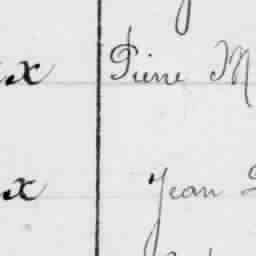 x Pierre M
x Jean